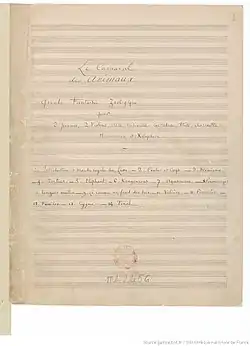 Le Carnaval
des Animaux
Grande Fantaisie Zoologique
pour
2 pianos, 2 violons, alto, violoncelle, contrebasse, flûte, clarinette
Harmonica et Xylophone
1. Introduction et Marche royale du Lion — 2. Poules et Coqs — 3. Hémiones
4. Tortues — 5. L'Eléphant — 6. Kangourous — 7. Aquarium — 8. Personnages
à longues oreilles — 9. Le coucou au fond des bois — 10. Volière — 11. Pianistes
12. Fossiles — 13. Cygne — 14. Final